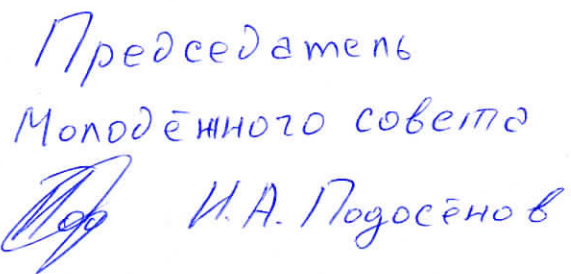 Председатель
Молодёжного совета
И.А. Подосёнов